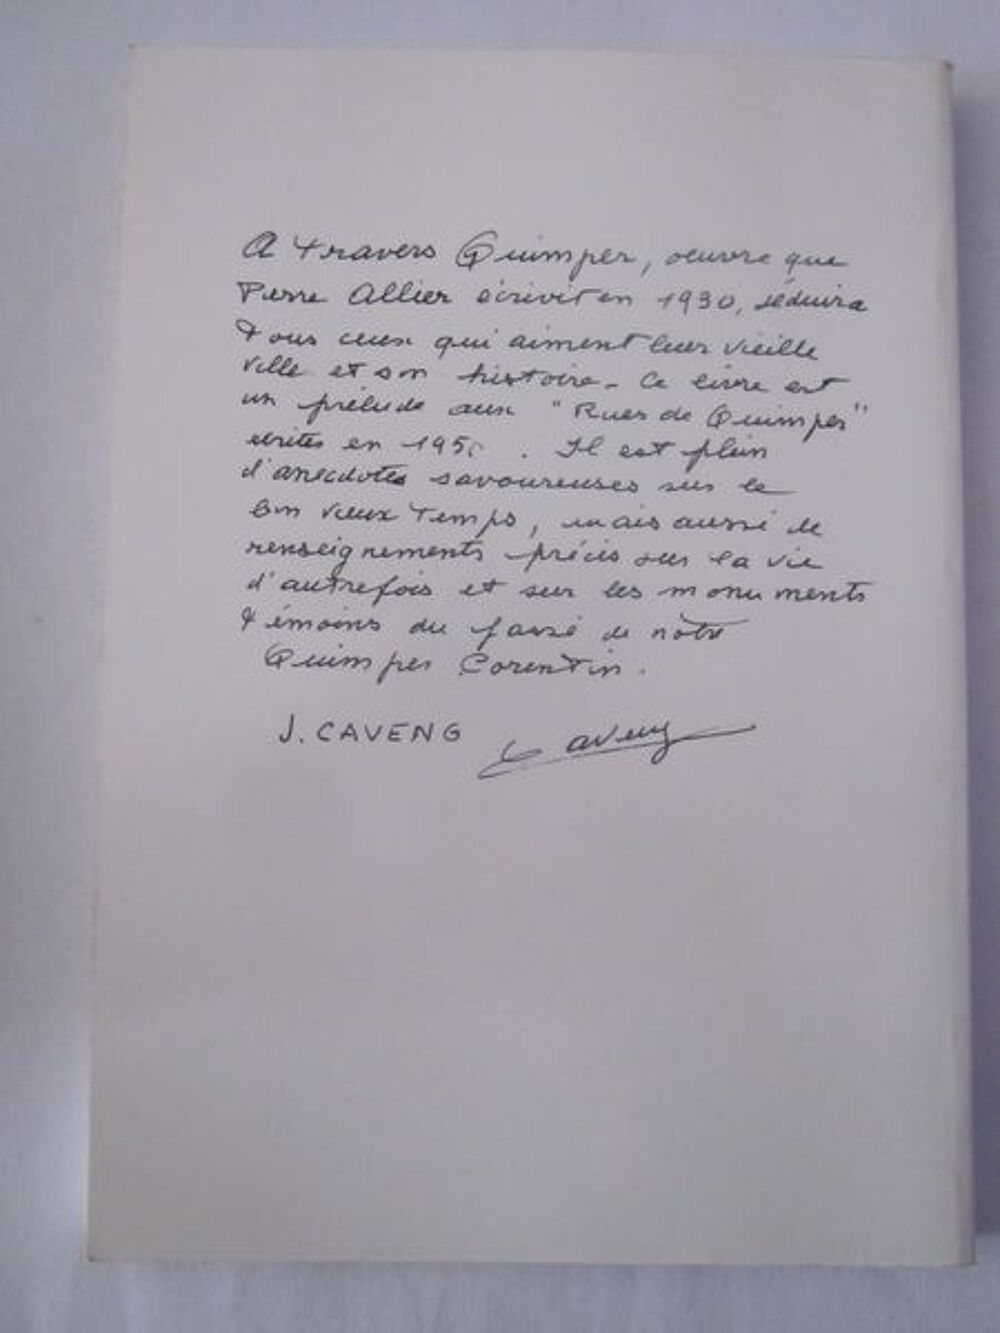 A travers Quimper, oeuvre que
Pierre Allier écrivit en 1930, séduira
tous ceux qui aiment leur vieille
ville et son histoire. Ce livre est
un prélude aux "Rues de Quimper"
écrites en
. Il est plein
d'anecdotes savoureuses sur le
bon vieux temps, mais aussi de
renseignements précis sur la vie
d'autrefois et sur les monuments
témoins du passé de notre
Quimper Corentin.
J. CAVENG Caveng